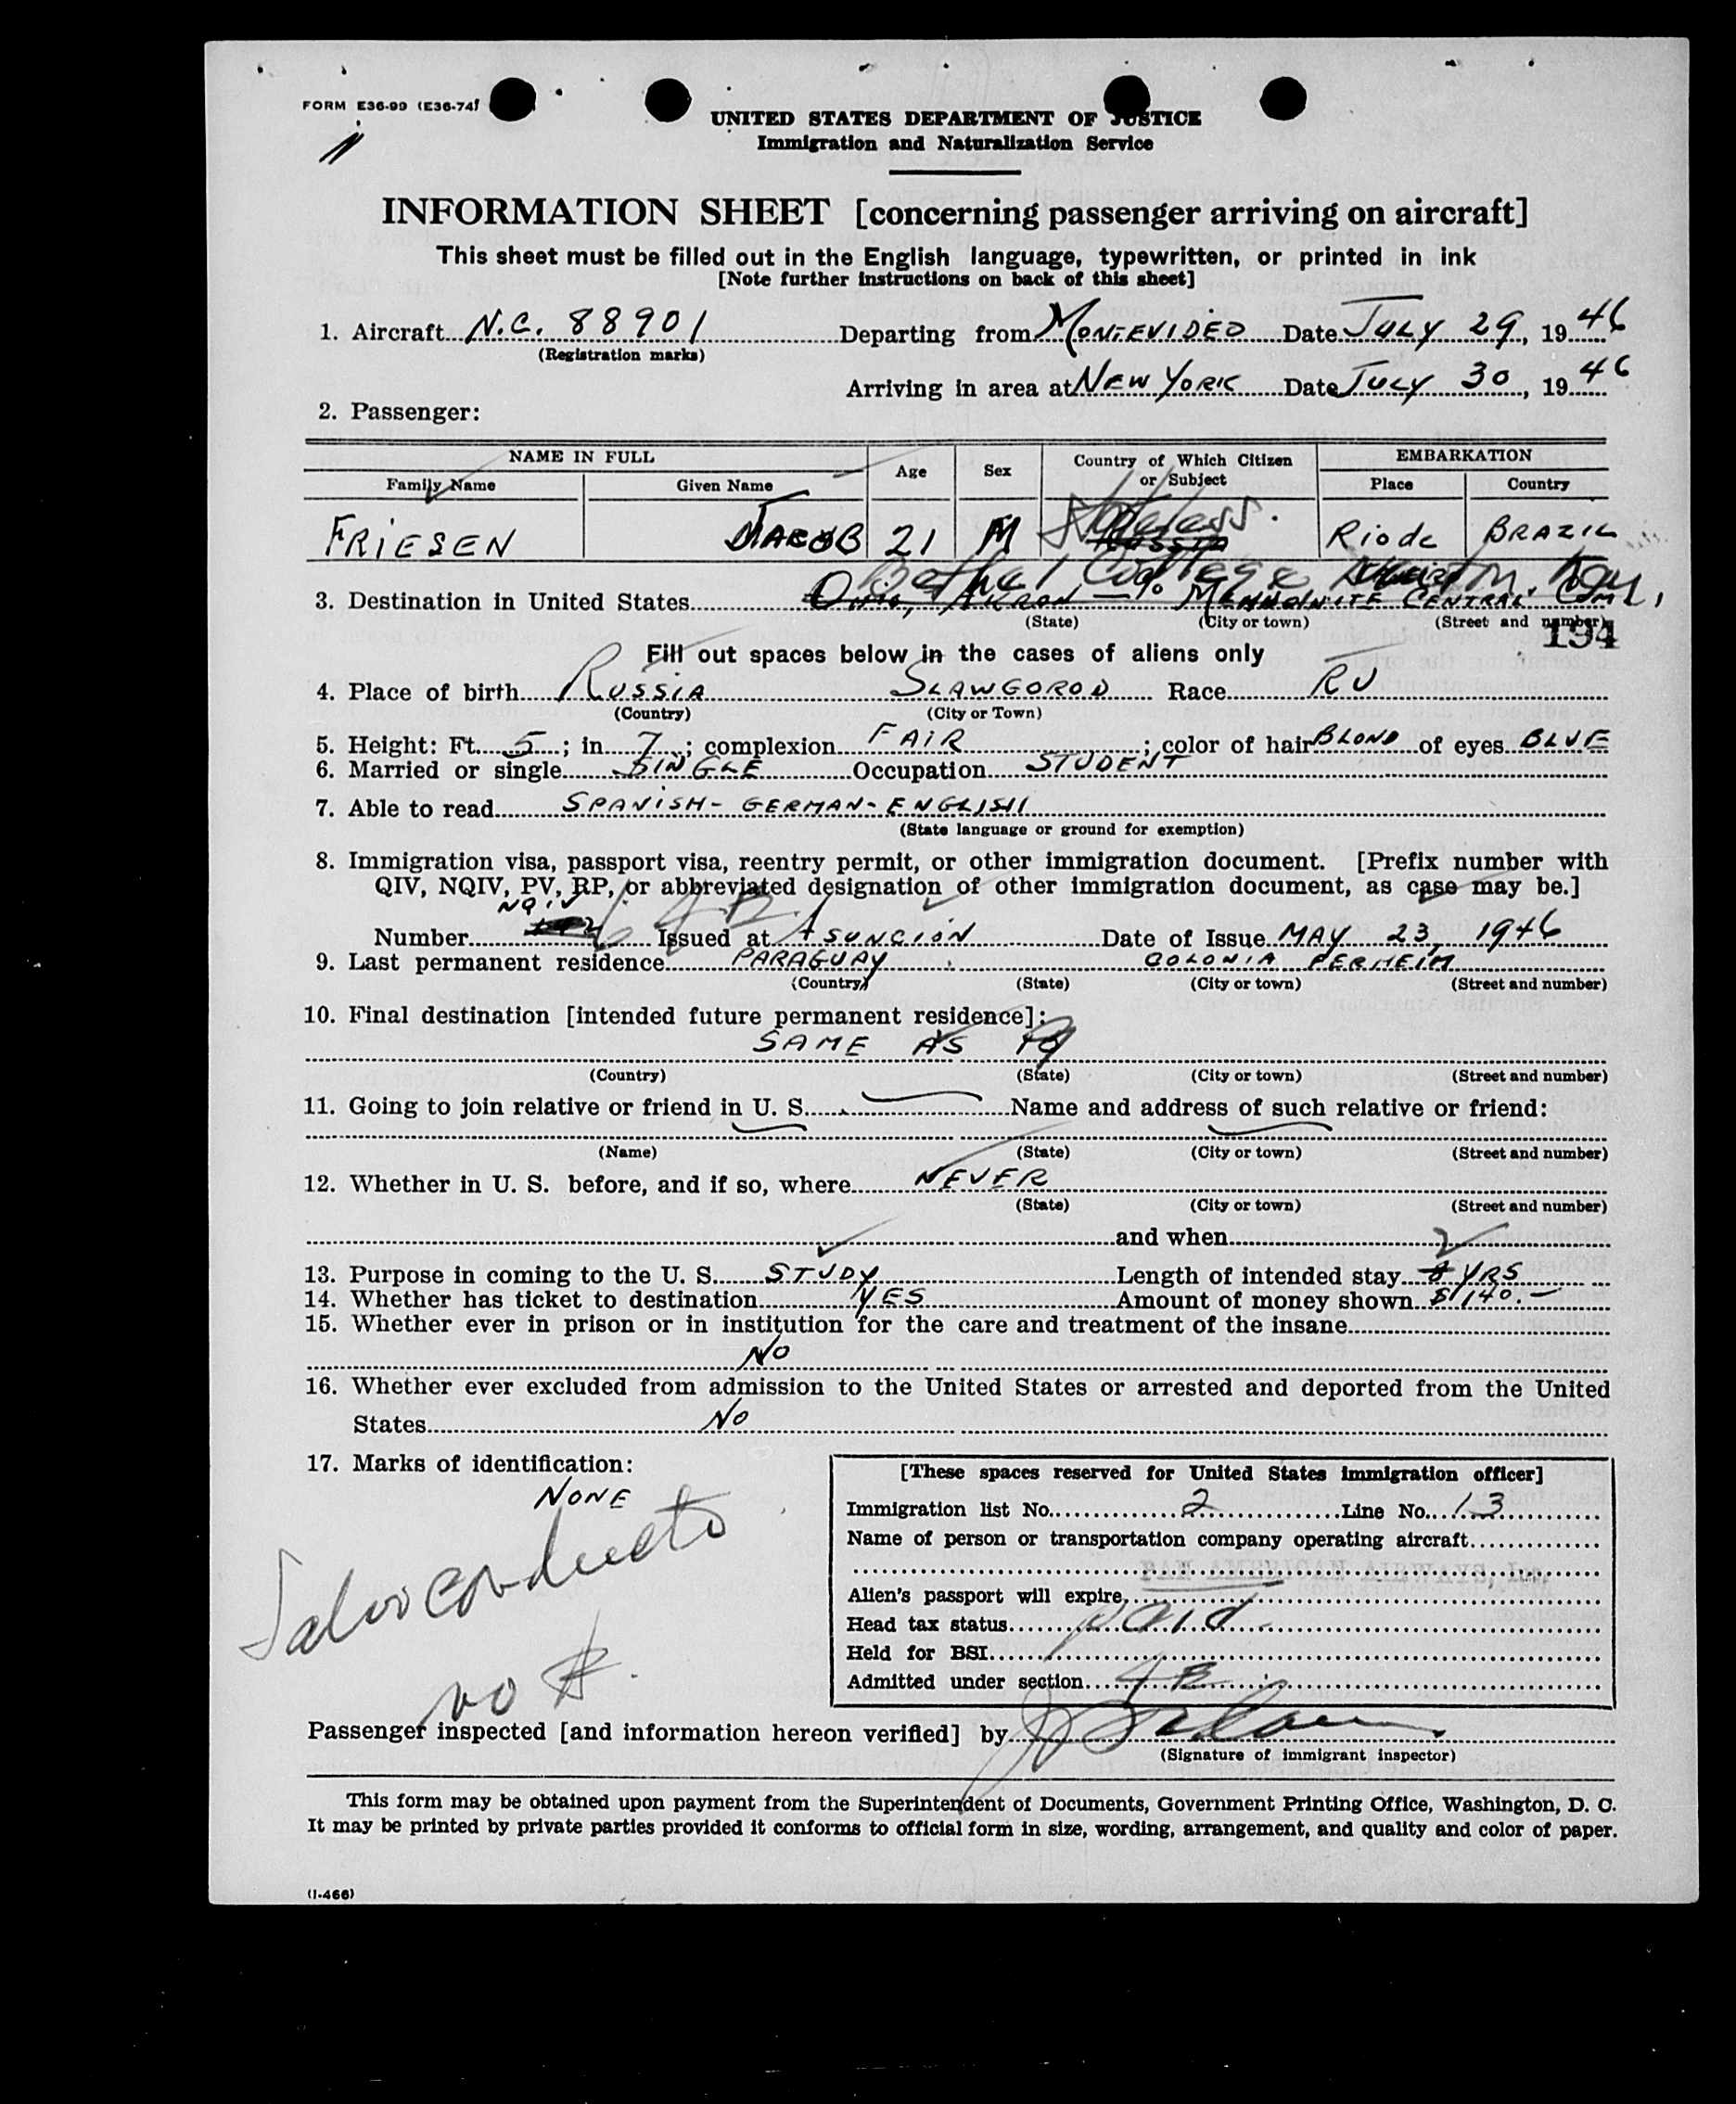 FORM E36-99 (E36-74)
UNITED STATES DEPARTMENT OF JUSTICE
Immigration and Naturalization Service
INFORMATION SHEET [concerning passenger arriving on aircraft]
This sheet must be filled out in the English language, typewritten, or printed in ink
[Note further instructions on back of this sheet]
1. Aircraft N.C. 88901 Departing from MONTEVIDEO Date JULY 29, 1946
(Registration marks)
Arriving in area at NEW YORK Date JULY 30, 1946
2. Passenger:
NAME IN FULL Age Sex Country of Which Citizen or Subject EMBARKATION
Family Name Given Name Place Country
FRIESEN JACOB 21 M Stateless. Rio de BRAZIL
Bethel College Newton, Kan,
3. Destination in United States OHIO, AKRON - % MENNONITE CENTRAL COM
(State) (City or town) (Street and number)
194
Fill out spaces below in the cases of aliens only
4. Place of birth RUSSIA SLAWGOROD Race RU
(Country) (City or Town)
5. Height: Ft. 5; in 7; complexion FAIR; color of hair BLOND of eyes BLUE
6. Married or single SINGLE Occupation STUDENT
7. Able to read SPANISH- GERMAN- ENGLISH
(State language or ground for exemption)
8. Immigration visa, passport visa, reentry permit, or other immigration document. [Prefix number with
QIV, NQIV, PV, RP, or abbreviated designation of other immigration document, as case may be.]
NQIV
Number Issued at ASUNCION Date of Issue MAY 23, 1946
9. Last permanent residence PARAGUAY COLONIA FERHEIM
(Country) (State) (City or town) (Street and number)
10. Final destination [intended future permanent residece]:
SAME AS 9
(Country) (State) (City or town) (Street and number)
11. Going to join relative or friend in U. S. Name and address of such relative or friend:
(Name) (State) (City or town) (Street and number)
12. Whether in U. S. before, and if so, where NEVER
(State) (City or town) (Street and number)
and when
13. Purpose in coming to the U. S. STUDY Length of intended stay 2 YRS
14. Whether has ticket to destination YES Amount of money shown $140.-
15. Whether ever in prison or in institution for the care and treatment of the insane
NO
16. Whether ever excluded from admission to the United States or arrested and deported from the United
States NO
17. Marks of identification:
NONE
Salvoconducto
no
[These spaces reserved for United States immigration officer]
Immigration list No. 2 Line No. 13
Name of person or transportation company operating aircraft
PAN AMERICAN AIRWAYS, Inc
Alien's passport will expire
Head tax status paid
Held for BSI
Admitted under section 4 E
Passenger inspected [and information hereon verified] by
(Signature of immigrant inspector)
This form may be obtained upon payment from the Superintendent of Documents, Government Printing Office, Washington, D. C.
It may be printed by private parties provided it conforms to official form in size, wording, arrangement, and quality and color of paper.
(I-466)